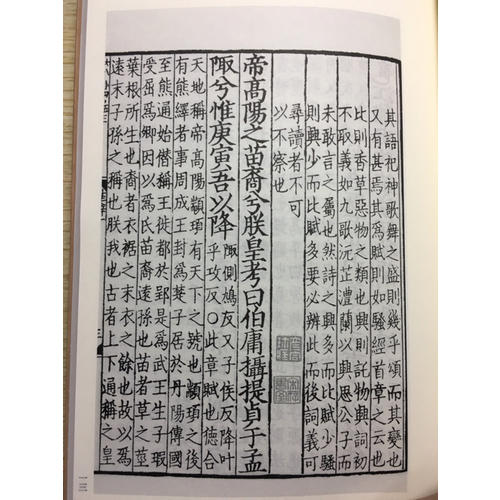 其語祀神歌舞之盛則幾乎頌而其變也
又有甚焉其爲賦則如騷經首章之云也
比則香草惡物之類也興則託物興詞初
不取義如九歌沅芷澧蘭以興思公子而
未敢言之屬也然詩之興多而比賦少騷
則興少而比賦多要必辨此而後詞義可
尋讀者不可
以不察也
帝高陽之苗裔兮朕皇考曰伯庸攝提貞于孟
陬兮惟庚寅吾以降
陬側鳩反又子侯反降叶
乎攻反〇此章賦也德合
天地稱帝高陽顓頊有天下之號也顓頊之後
有熊繹者事周成王封爲楚子居於丹陽傳國
至熊通始僭稱王徙都於郢是爲武王生子瑕
受屈爲卿因以爲氏苗裔遠孫也苗者草之莖
葉根所生也裔者衣裾之末衣之餘也故以爲
遠末子孫之稱也朕我也古者上下通稱之皇
三
一三